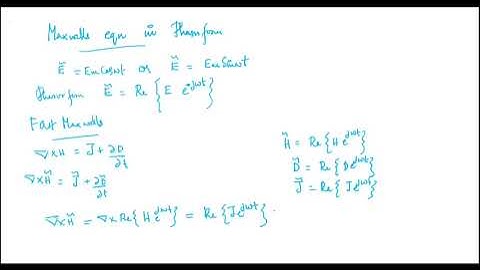 Maxwells eqn in Phasorform
Ẽ = Em Cosωt or Ẽ = Em Sinωt
Phasorform Ẽ = Re { E e^jωt }
First Maxwells
∇ x H = J̄ + ∂D/∂t
∇ x H̃ = J̃ + ∂D̃/∂t
∇ x H̃ = ∇ x Re { H e^jωt } = Re { J e^jωt }
H̃ = Re { H e^jωt }
D̃ = Re { D e^jωt }
J̃ = Re { J e^jωt }